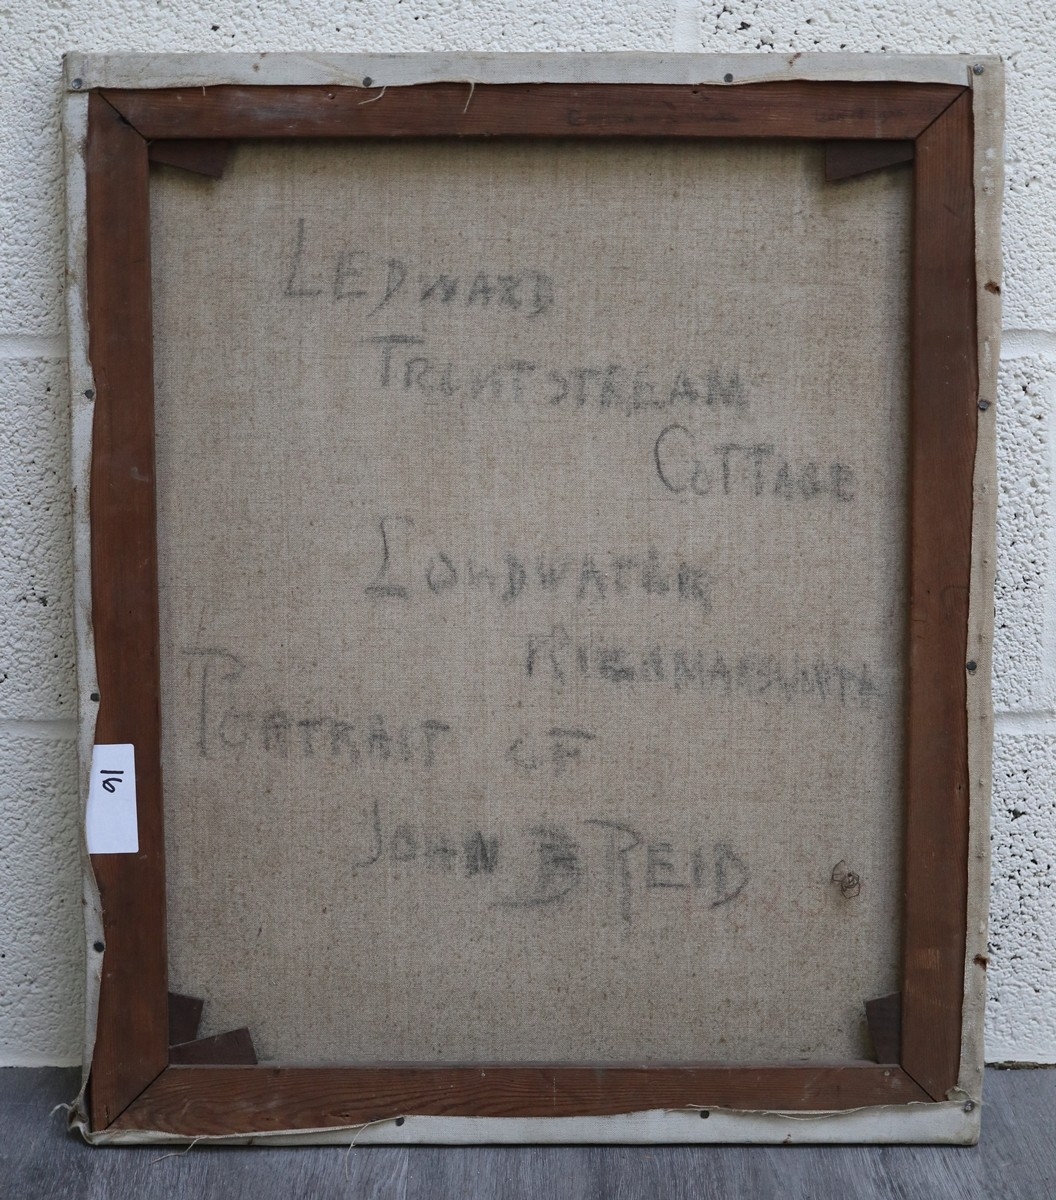 LEDWARD
TROUTSTREAM
COTTAGE
LOUDWATER
RICKMANSWORTH
PORTRAIT OF
JOHN B REID
16